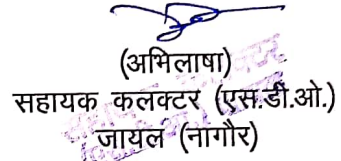 (अभिलाषा)
सहायक कलक्टर (एस.डी.ओ.)
जायल (नागौर)